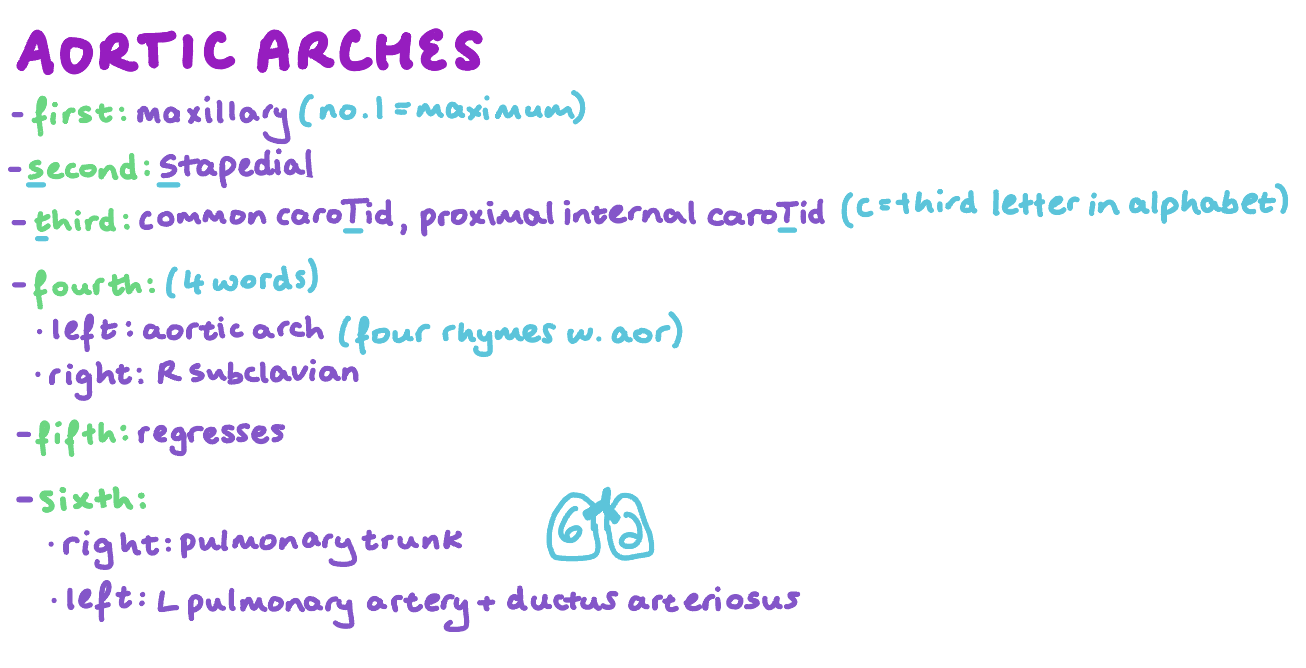 AORTIC ARCHES
- first: maxillary (no. 1 = maximum)
- second: Stapedial
- third: common caroTid, proximal internal caroTid (c = third letter in alphabet)
- fourth: (4 words)
· left: aortic arch (four rhymes w. aor)
· right: R subclavian
- fifth: regresses
- sixth:
6 2
· right: pulmonary trunk
· left: L pulmonary artery + ductus arteriosus